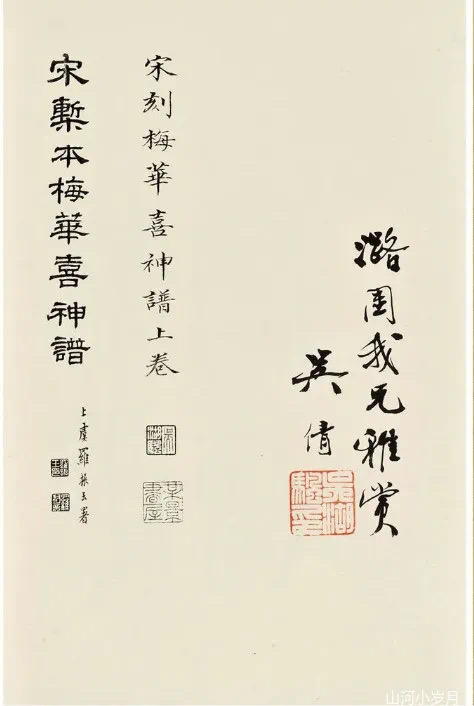 潞園我兄雅賞
吳倩
吳湖颿印
宋刻梅華喜神譜上卷
梅景書屋
宋槧本梅華喜神譜
上虞羅振玉署
山河小岁月